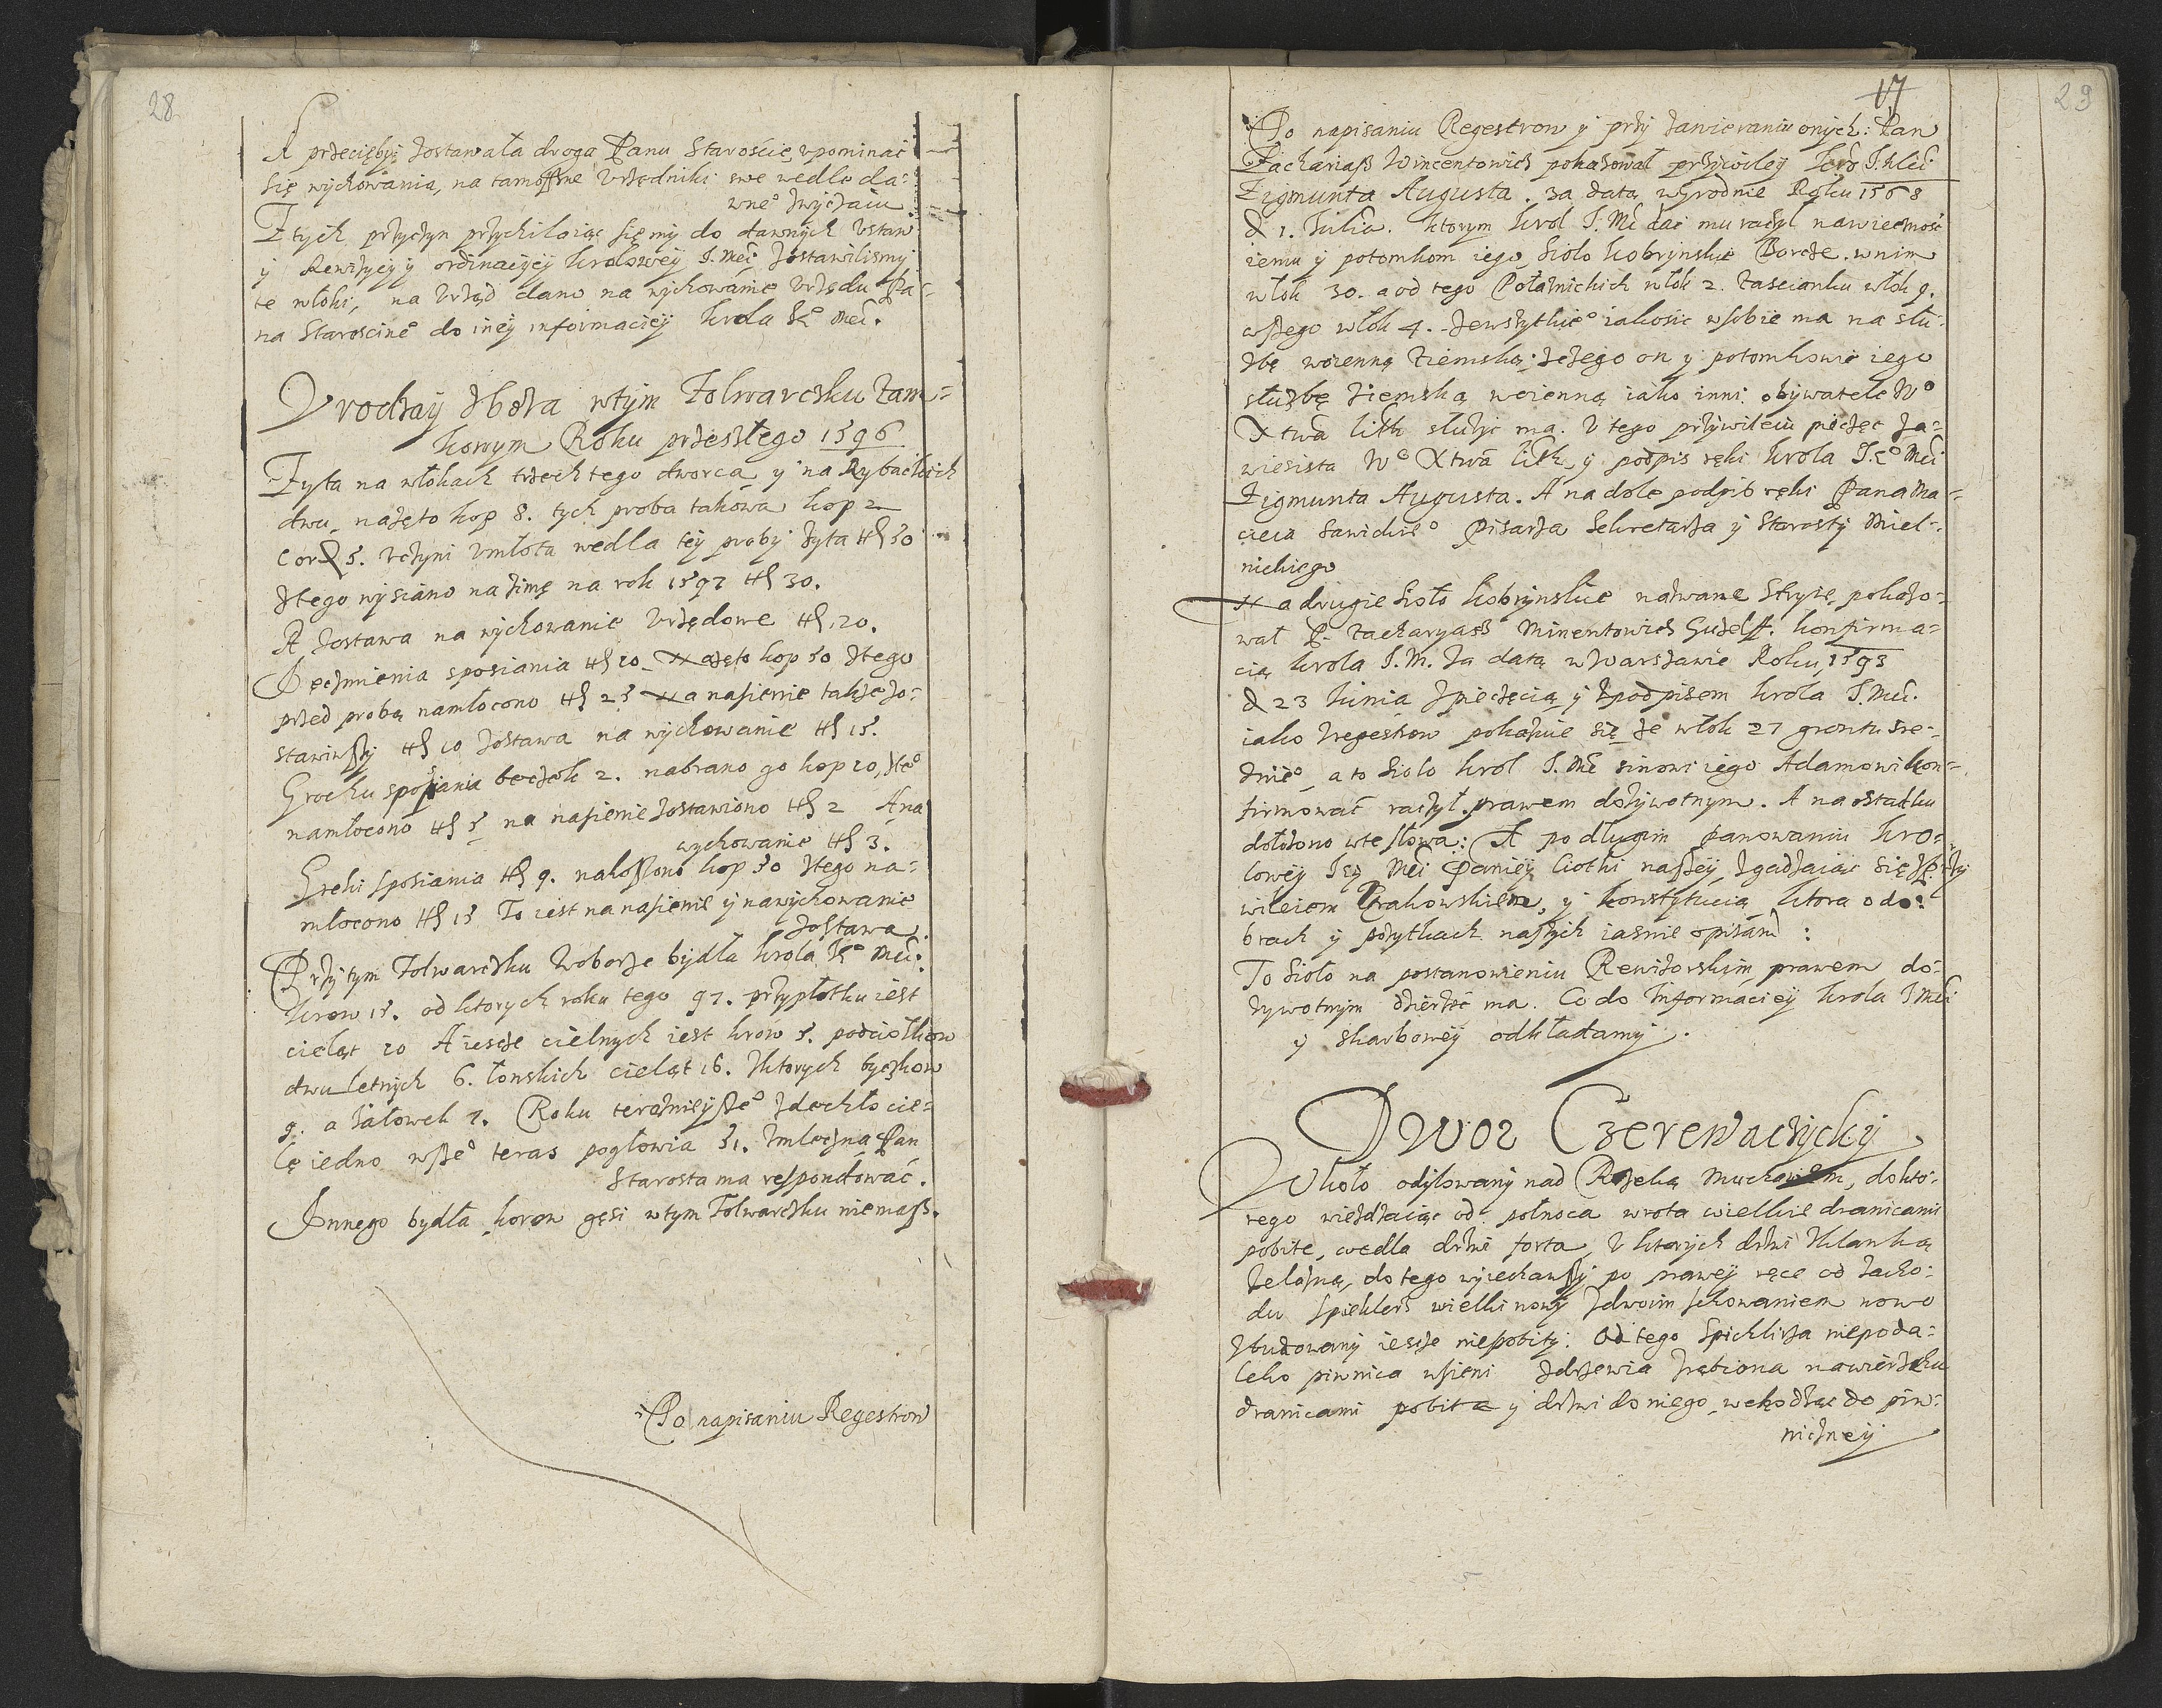 28
A przecięby zostawała droga Panu Staroście vpominać
się wychowania, na tamossne Vrzędniki swe wedle da=
wne° zwyczaiu.
Z tych przyczyn przychilaiąc się my do dawnych Vstaw
y Rewizyey y ordinacyey Krolowey J. Mci zostawilismy
te włoki, na Vrząd dano na wychowanie Vrzędu Pa=
na Staroscine° do iney informaciey Krola Je° Mci.
Vrodzay zboża wtym Folwarczku Zam=
kowym Roku przeszłego 1596
Żyta na włokach trzech tego dworca y na Rybackich
dwu nażęto kop 8. tych proba takowa kop 2
Cor 5. Vczyni Vmłota wedla tey proby żyta 50
Ztego wysiano na zimę na rok 1597 30.
A zostawa na wychowanie Vrzędowe 20.
Jęczmienia sposiania 10 Nażęto kop 50 Ztego
przed probą namłocono 25 Na nasienie takze zo=
stawiwszy 10 zostawa na wychowanie 15.
Grochu sposiania beczek 2. nabrano go kop 10, zte°
namłocono 5 na nasienie zostawiono 2 A na
wychowanie 3.
Greki sposiania 9. nakoszono kop 50 ztego na=
młocono 15 To iest na nasienie y na wychowanie
zostawa.
Przy tym Folwarczku Woborze bydła Krola Je° Mci.
Krow 15. od ktorych roku tego 97. przypłotku iest
cieląt 10 A iescze cielnych iest krow 5. podciołkow
dwu letnych 6. łonskich cieląt 16. Zktorych byczkow
9. a Jałowek 7. Roku teraznieysze° zdechło cie=
lę iedno wsze° teras pogłowia 51. Zmleczną Pan
Starosta ma respondować.
Jnnego bydła koron gęsi wtym Folwarczku niemasz.
Po napisaniu Regestrow
17
29
Po napisaniu Regestrow y przy zawieraniu onych: Pan
Zachariasz Wincentowicz pokazował przywiley J. K. Mci
Zigmunta Augusta. Za datą w Grodnie Roku 1568
d 1. Julia. Ktorym Krol J. Mć dać mu raczył nawiecznosć
iemu y potomkom iego, Sioło Kobrynskie Borcze. wnim
włok 30. a od tego Połaznickich włok 2. Zascianku włok 9.
wszego włok 4. Zewszytkie° iakosie wsobie ma na słu=
żbę woienną Ziemską: Zczego on y potomkowie iego
służbę Ziemską woienną iako inni obywatele W°
X twa Litt służyc ma. V tego przywileiu pieczęć za=
wiesista W° X twa Litt, y podpis ręki Krola J. K° Mci
Zigmunta Augusta. A na dole podpis ręki Pana Ma=
cieia Sawickie° Pisarza Sekretarza y Starosty Miel=
nickiego
Na drugie Sioło Kobrynskie nazwane Stryie, pokazo=
wał P. Zacharyasz Konfirma=
cią Krola J. M. Za datą w Warszawie Roku 1593
d 23 Junia Zpieczęcią y Zpodpisem Krola J. Mci.
iako Zregestrow pokazuie się że włok 27 grontu sre=
dnie°, a to Sioło Krol J. Mć sinowi iego Adamowi Kon=
firmować raczył prawem dożywotnym. A na ostatku
dołożono wte słowa: A po długim panowaniu Kro=
lowey Jey Mci Paniey Ciotki naszey, Zgadzaiąc się Sprzy
wileiem Krakowskiem, y Konstytucią, ktora o do=
brach y pożytkach naszych iasnie opisano:
To Sioło na postanowieniu Rewizorskim prawem do=
żywotnym dzierżeć ma. Co do Informaciey Krola J Mci
y Skarbowey odkładamy.
Dwor Czerewaczycky
Wkoło odylowany nad Rzeką Muchawcem, do kto=
rego wieżdzaiąc od połnoca wrota wielkie dranicami
pobite, wedla drzwi forta, V ktorych drzwi Zklamką
Żelazną, do tego wyiechawszy po prawey ręce od Zacho=
du Spichlerz wielki nowy Zdwoim schowaniem nowo
Zbudowany iescze niepobity. Od tego Spichlirza niepoda=
leko piwnica wsieni Zdrzewia Zrębiona nawierzchu
dranicami pobita y drzwi do niego, wchodząc do piw=
niczney